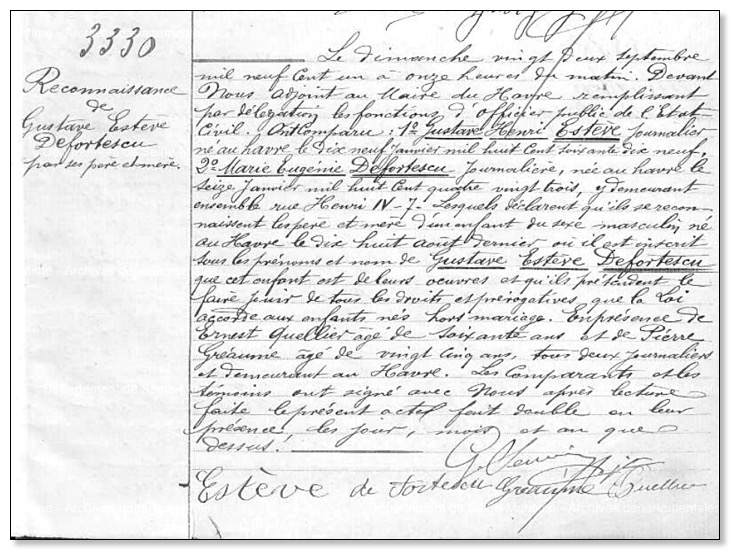 3330
Reconnaissance
de
Gustave Estève
Defortescu
par ses père et mère.
Le dimanche vingt deux septembre
mil neuf Cent un à onze heures du matin. Devant
Nous adjoint au Maire du Havre remplissant
par délégation les fonctions d'officier public de l'Etat-
Civil. Ont Comparu : 1º Gustave Henri Estève Journalier
né au havre le dix neuf Janvier mil huit Cent soixante dix neuf,
2º Marie Eugénie Defortescu Journalière, née au havre le
seize Janvier mil huit Cent quatre vingt trois, y demeurant
ensemble rue Henri IV - 7. Lesquels déclarent qu'ils se recon-
naissent les père et mère d'un enfant du sexe masculin né
au Havre le dix huit août dernier où il est inscrit
sous les prénoms et nom de Gustave Estève Defortescu
que cet enfant est de leurs oeuvres et qu'ils prétendent le
faire jouir de tous les droits et prérogatives que la Loi
accorde aux enfants nés hors mariage. En présence de
Ernest Quellier âgé de soixante ans et de Pierre
Gréaume âgé de vingt cinq ans, tous deux Journaliers
et demeurant au Havre. Les Comparants et les
témoins ont signé avec Nous après lecture
faite le présent acte fait double en leur
présence, les jour, mois et an que
dessus.
Estève de fortescu Gréaume Quellier